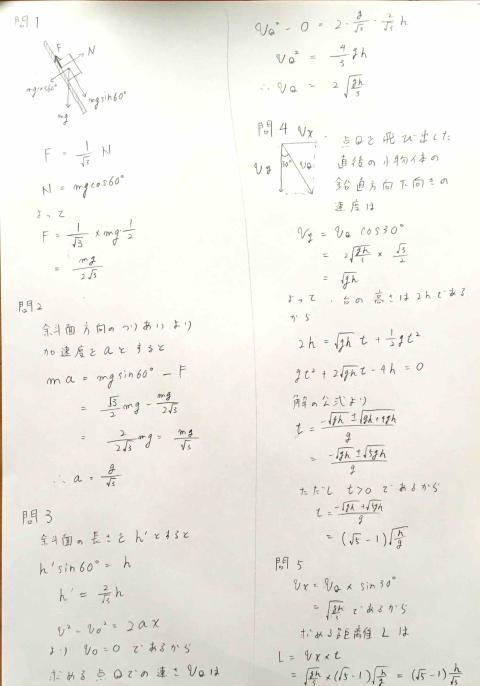 問1
F
N
mgcos60°
mgsin60°
mg
F = 1/√3 N
N = mgcos60°
よって
F = 1/√3 × mg・1/2
= mg/2√3
問2
斜面方向のつりあいより
加速度をaとすると
ma = mgsin60° − F
= √3/2 mg − mg/2√3
= 2/2√3 mg = mg/√3
∴ a = g/√3
問3
斜面の長さをh'とすると
h'sin60° = h
h' = 2/√3 h
v² − v₀² = 2ax
より v₀ = 0 であるから
求める点Qでの速さ vQは
vQ² − 0 = 2・g/√3・2/√3 h
vQ² = 4/3 gh
∴ vQ = 2√(gh/3)
問4
vx
vy
30°
vQ
点Qを飛び出した
直後の小物体の
鉛直方向下向きの
速度は
vy = vQ cos30°
= 2√(gh/3) × √3/2
= √gh
よって、台の高さは2hである
から
2h = √gh t + 1/2 gt²
gt² + 2√gh t − 4h = 0
解の公式より
t = (−√gh ± √(gh+4gh))/g
= (−√gh ± √5gh)/g
ただし t>0 であるから
t = (−√gh + √5gh)/g
= (√5 − 1)√(h/g)
問5
vx = vQ × sin30°
= √(gh/3) であるから
求める距離 L は
L = vx × t
= √(gh/3) × (√5 − 1)√(h/g) = (√5 − 1) h/√3